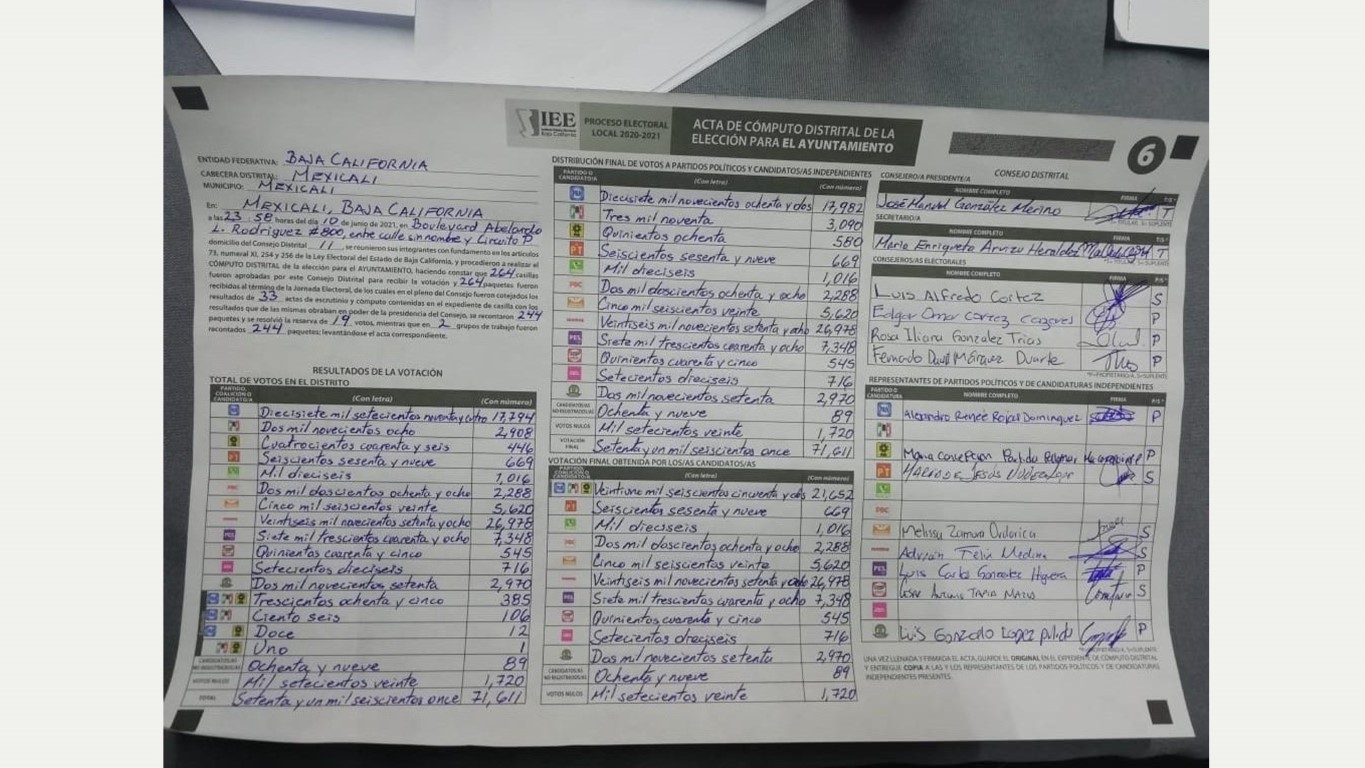 IEE
Instituto Estatal Electoral
Baja California
PROCESO ELECTORAL
LOCAL 2020-2021
ACTA DE CÓMPUTO DISTRITAL DE LA
ELECCIÓN PARA EL AYUNTAMIENTO
6
ENTIDAD FEDERATIVA: BAJA CALIFORNIA
CABECERA DISTRITAL: MEXICALI
MUNICIPIO: MEXICALI
En: MEXICALI, BAJA CALIFORNIA
a las 23:58 horas del día 10 de junio de 2021, en Boulevard Abelardo
L. Rodriguez #800, entre calle sin nombre y Circuito P
domicilio del Consejo Distrital 11, se reunieron sus integrantes con fundamento en los artículos
73, numeral XI, 254 y 256 de la Ley Electoral del Estado de Baja California, y procedieron a realizar el
CÓMPUTO DISTRITAL de la elección para el AYUNTAMIENTO, haciendo constar que 264 casillas
fueron aprobadas por este Consejo Distrital para recibir la votación y 264 paquetes fueron
recibidos al término de la Jornada Electoral, de los cuales en el pleno del Consejo fueron cotejados los
resultados de 33 actas de escrutinio y cómputo contenidas en el expediente de casilla con los
resultados que de las mismas obraban en poder de la presidencia del Consejo, se recontaron 244
paquetes y se resolvió la reserva de 19 votos, mientras que en 2 grupos de trabajo fueron
recontados 244 paquetes; levantándose el acta correspondiente.
RESULTADOS DE LA VOTACIÓN
TOTAL DE VOTOS EN EL DISTRITO
PARTIDO, COALICIÓN O CANDIDATO/A (Con letra) (Con número)
Diecisiete mil setecientos noventa y cuatro 17,794
Dos mil novecientos ocho 2,908
Cuatrocientos cuarenta y seis 446
Seiscientos sesenta y nueve 669
Mil dieciseis 1,016
PBC Dos mil doscientos ochenta y ocho 2,288
Cinco mil seiscientos veinte 5,620
Veintiseis mil novecientos setenta y ocho 26,978
PES Siete mil trescientos cuarenta y ocho 7,348
Quinientos cuarenta y cinco 545
Setecientos dieciseis 716
Dos mil novecientos setenta 2,970
Trescientos ochenta y cinco 385
Ciento seis 106
Doce 12
Uno 1
CANDIDATOS/AS NO REGISTRADOS/AS Ochenta y nueve 89
VOTOS NULOS Mil setecientos veinte 1,720
TOTAL Setenta y un mil seiscientos once 71,611
DISTRIBUCIÓN FINAL DE VOTOS A PARTIDOS POLÍTICOS Y CANDIDATOS/AS INDEPENDIENTES
PARTIDO O CANDIDATO/A (Con letra) (Con número)
Diecisiete mil novecientos ochenta y dos 17,982
Tres mil noventa 3,090
Quinientos ochenta 580
PT Seiscientos sesenta y nueve 669
Mil dieciseis 1,016
PBC Dos mil doscientos ochenta y ocho 2,288
Cinco mil seiscientos veinte 5,620
Veintiseis mil novecientos setenta y ocho 26,978
PES Siete mil trescientos cuarenta y ocho 7,348
Quinientos cuarenta y cinco 545
Setecientos dieciseis 716
Dos mil novecientos setenta 2,970
CANDIDATOS/AS NO REGISTRADOS/AS Ochenta y nueve 89
VOTOS NULOS Mil setecientos veinte 1,720
VOTACIÓN FINAL Setenta y un mil seiscientos once 71,611
VOTACIÓN FINAL OBTENIDA POR LOS/AS CANDIDATOS/AS
PARTIDO, COALICIÓN O CANDIDATO/A (Con letra) (Con número)
Veintiuno mil seiscientos cincuenta y dos 21,652
PT Seiscientos sesenta y nueve 669
Mil dieciseis 1,016
PBC Dos mil doscientos ochenta y ocho 2,288
Cinco mil seiscientos veinte 5,620
Veintiseis mil novecientos setenta y ocho 26,978
PES Siete mil trescientos cuarenta y ocho 7,348
Quinientos cuarenta y cinco 545
Setecientos dieciseis 716
Dos mil novecientos setenta 2,970
CANDIDATOS/AS NO REGISTRADOS/AS Ochenta y nueve 89
VOTOS NULOS Mil setecientos veinte 1,720
CONSEJERO/A PRESIDENTE/A CONSEJO DISTRITAL
NOMBRE COMPLETO FIRMA
José Manuel González Merino T
SECRETARIO/A
NOMBRE COMPLETO FIRMA T/S*
Mario Enriqueta Arvizu T
CONSEJEROS/AS ELECTORALES
NOMBRE COMPLETO FIRMA P/S*
Luis Alfredo Cortez S
Edgar Omar Cortez Cazares P
Rosa Iliana Gonzalez Trias P
Fernando David Márquez Duarte P
*P=PROPIETARIO/A, S=SUPLENTE
REPRESENTANTES DE PARTIDOS POLÍTICOS Y DE CANDIDATURAS INDEPENDIENTES
PARTIDO O CANDIDATURA NOMBRE COMPLETO FIRMA P/S*
Alejandro Reneé Rojas Dominguez P
Maria Concepcion Partida P
PT Jesús S
PBC
Melissa Zamora S
Adrián Telix Medina S
PES Luis Carlos Gonzalez Higuera P
Jose Antonio Tapia S
Luis Gonzalo Lopez Pulido P
*P=PROPIETARIO/A, S=SUPLENTE
UNA VEZ LLENADA Y FIRMADA EL ACTA, GUARDE EL ORIGINAL EN EL EXPEDIENTE DE CÓMPUTO DISTRITAL
Y ENTREGUE COPIA A LAS Y LOS REPRESENTANTES DE LOS PARTIDOS POLÍTICOS Y DE CANDIDATURAS
INDEPENDIENTES PRESENTES.